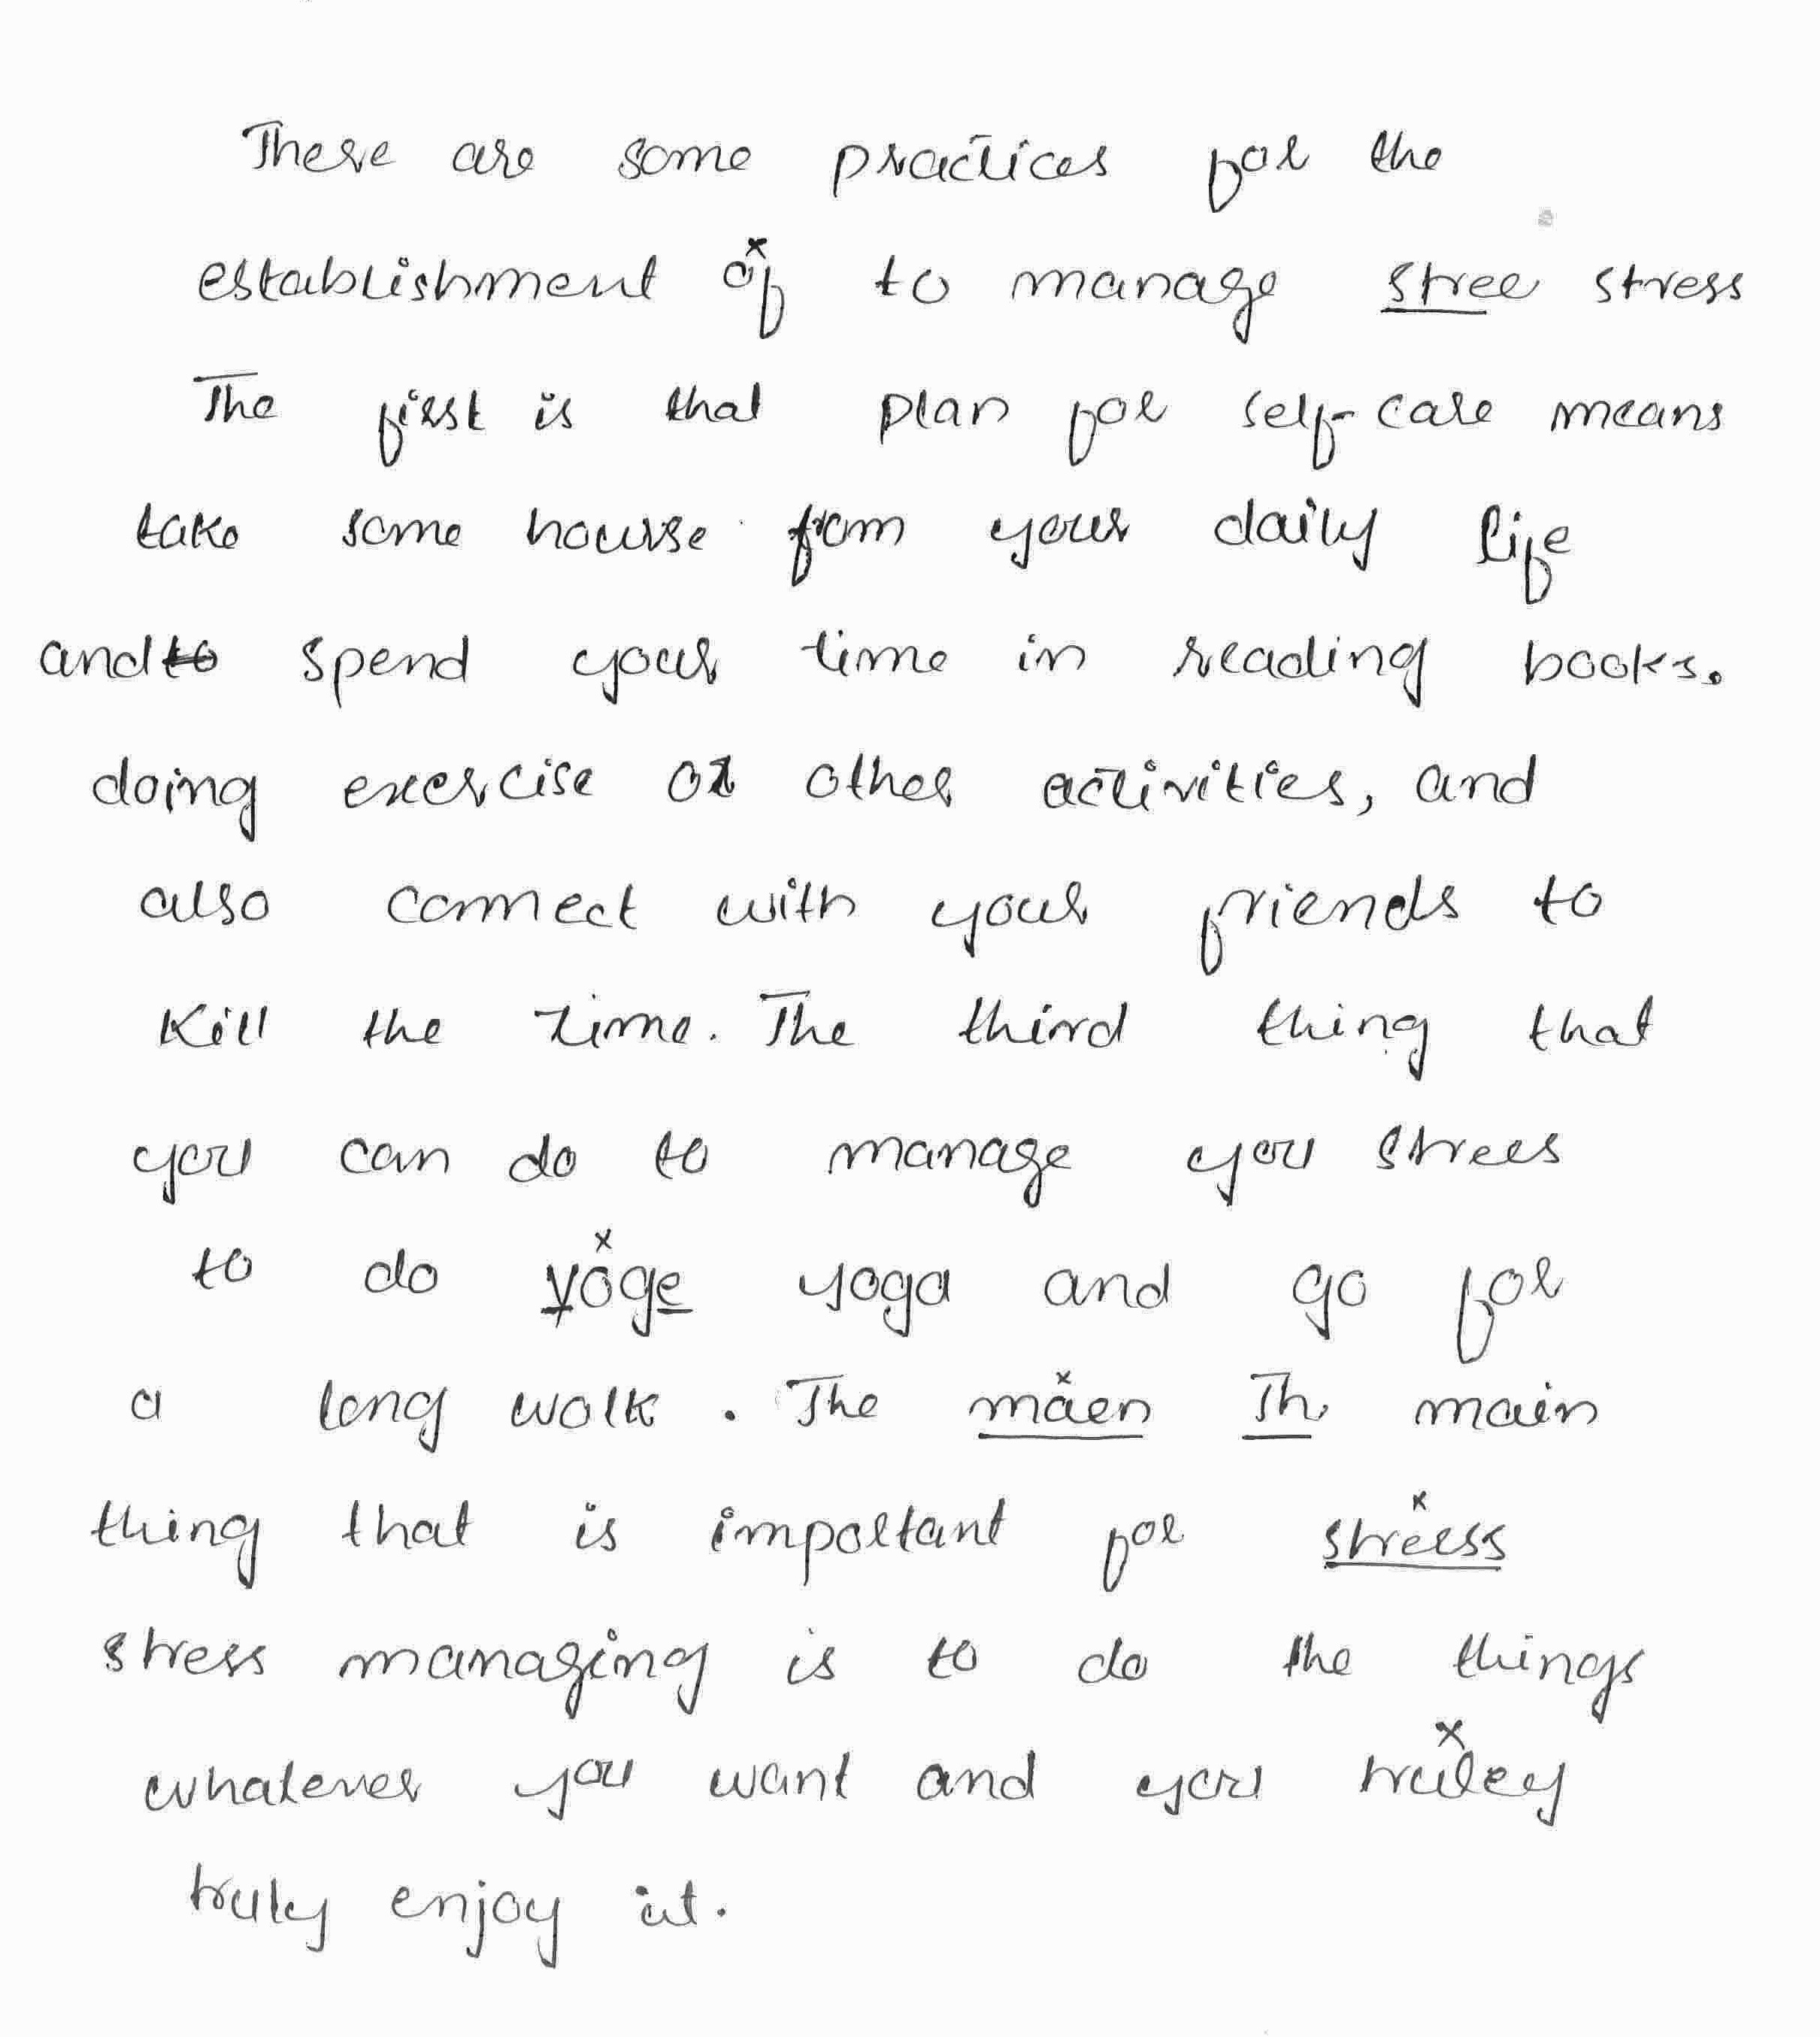 There are some practices for the
establishment of to manage stree stress
The first is that plan for self-care means
take some hourse from your daily life
and to spend your time in reading books.
doing exercise or other activities, and
also connect with your friends to
Kill the time. The third thing that
you can do to manage you strees
to do yoge yoga and go for
a long walk. The maen Th main
thing that is important for streess
stress managing is to do the things
whatever you want and you truley
truly enjoy it.